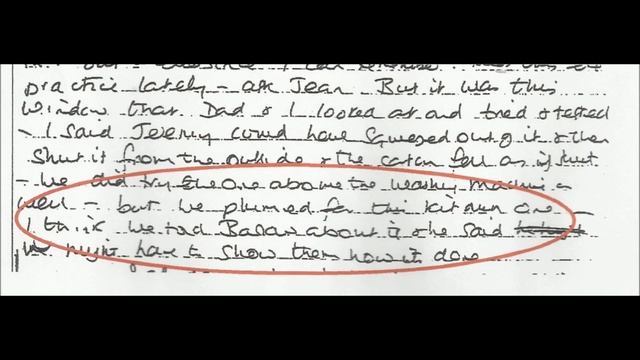 practice lately - ask Jean. But it was this
window that Dad & I looked at and tried & tested
- I said Jeremy could have squeezed out of it & then
shut it from the outside & the catch fell as if shut
- We did try the one above the washing machine as
well - but we plumed for this kitchen one -
I think we told Barlow about it & he said
we might have to show them how it done